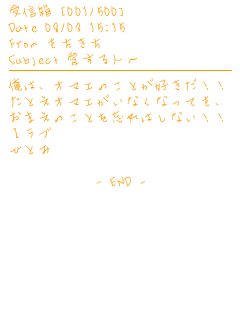 受信箱 [001/500]
Date 08/08 15:15
From ももきち
Subject 愛するトー
俺は、オマエのことが好きだ!!
たとえオマエがいなくなっても、
おまえのことを忘れはしない!!
I ラブ
ひとみ
- END -